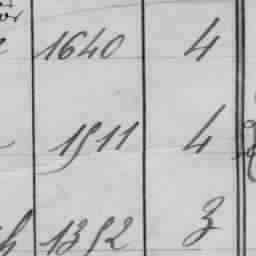 1640 4
1911 4
1392 3